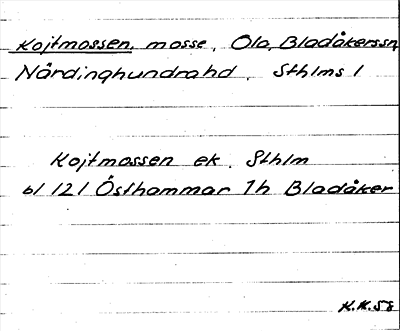 Kojtmossen, mosse, Olo, Bladåkerssn,
Närdinghundrahd, Sthlms l
Kojtmossen ek. Sthlm
bl 121 Östhammar 1h Bladåker
K.K.58